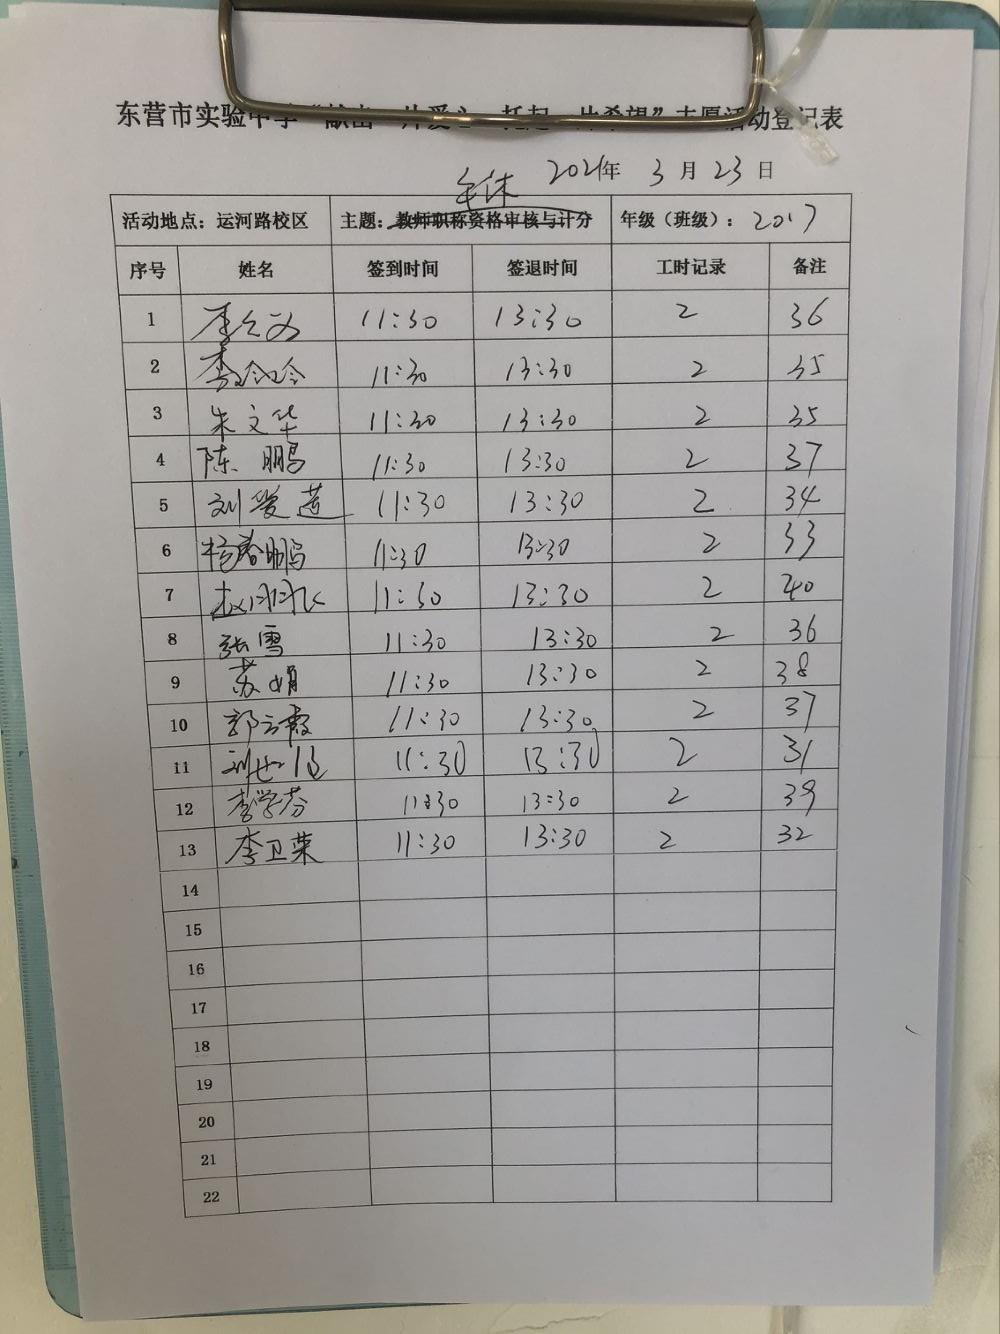 东营市实验中学“献出一片爱心 托起一片希望”志愿活动登记表
2021年 3 月 23 日
午休
活动地点：运河路校区 主题：教师职称资格审核与计分 年级（班级）：2017
序号 姓名 签到时间 签退时间 工时记录 备注
1 11:30 13:30 2 36
2 李玲玲 11:30 13:30 2 35
3 朱文华 11:30 13:30 2 35
4 陈鹏 11:30 13:30 2 37
5 刘爱莲 11:30 13:30 2 34
6 杨春鹏 11:30 13:30 2 33
7 11:30 13:30 2 40
8 张雪 11:30 13:30 2 36
9 苏娟 11:30 13:30 2 38
10 郭云霞 11:30 13:30 2 37
11 11:30 13:30 2 31
12 李学芬 11:30 13:30 2 39
13 李卫荣 11:30 13:30 2 32
14
15
16
17
18
19
20
21
22